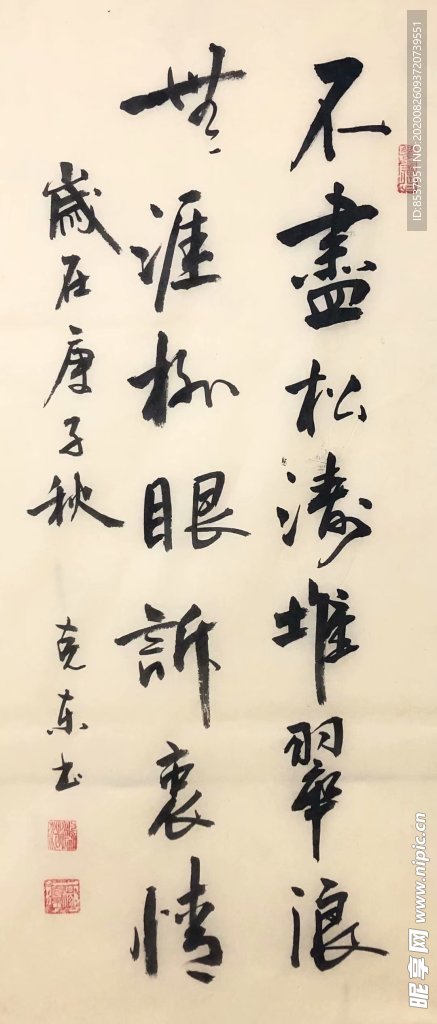 不盡松濤堆翠浪
無涯柳眼訴衷情
歲在庚子秋
克东书
ID:8537951 NO:20200826093720739551
昵享网 www.nipic.cn